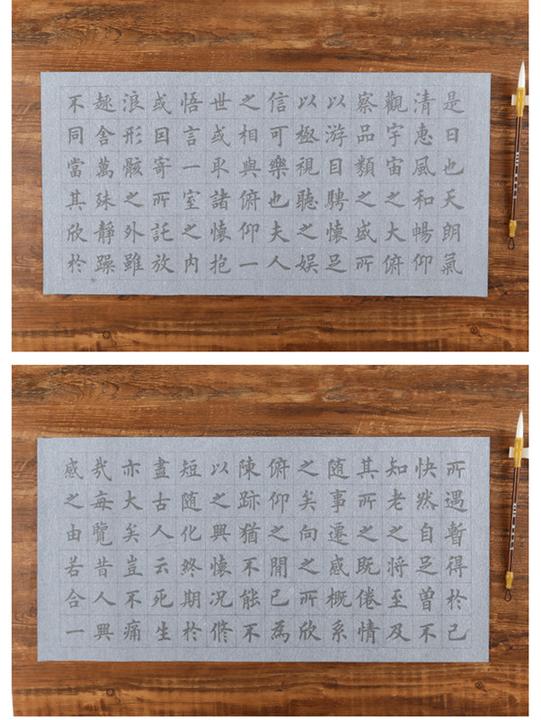 是日也天朗氣
清惠風和暢仰
觀宇宙之大俯
察品類之盛所
以游目騁懷足
以極視聽之娱
信可樂也夫人
之相與俯仰一
世或取諸懷抱
悟言一室之内
或因寄所託放
浪形骸之外雖
趣舍萬殊靜躁
不同當其欣於
所遇暫得於己
快然自足曾不
知老之將至及
其所之既倦情
随事遷感概系
之矣向之所欣
俯仰之閒已為
陳跡猶不能不
以之興懷况脩
短随化終期於
盡古人云死生
亦大矣豈不痛
哉每覽昔人興
感之由若合一